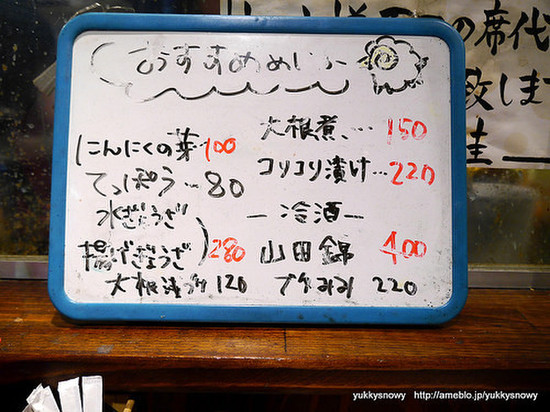 おすすめめにゅー
にんにくの芽 100
てっぽう…80
水ぎょうざ
揚げぎょうざ 280
大根漬 120
大根煮…150
コリコリ漬け…220
－冷酒－
山田錦 400
ブタみみ 220
の席代
致しま
yukkysnowy http://ameblo.jp/yukkysnowy